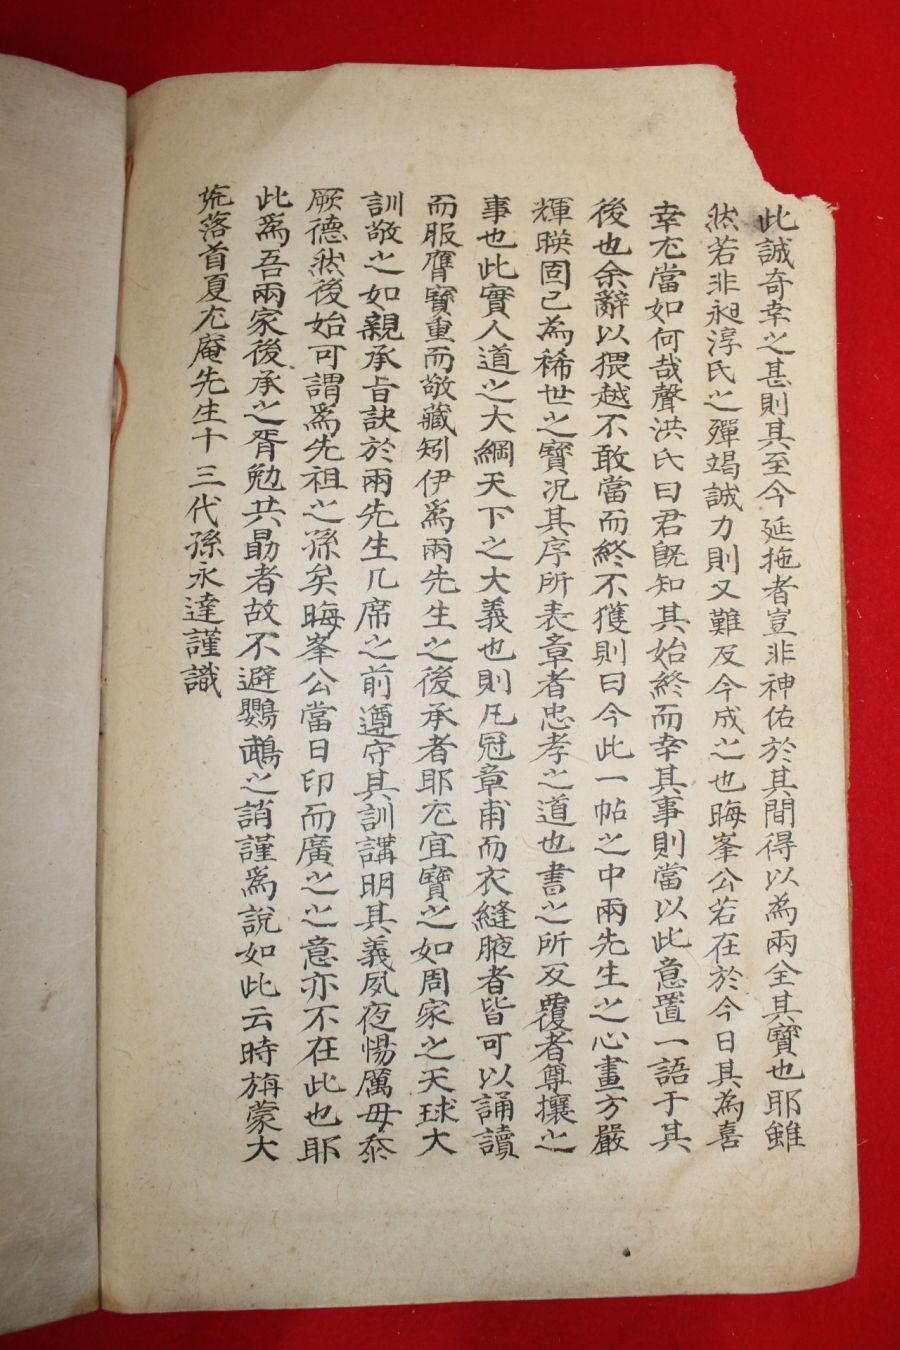 此誠奇幸之甚則其至今延拖者豈非神佑於其間得以為兩全其寶也耶雖
然若非昶淳氏之殫竭誠力則又難及今成之也晦峯公若在於今日其為喜
幸尤當如何哉聲洪氏曰君旣知其始終而幸其事則當以此意置一語于其
後也余辭以猥越不敢當而終不獲則曰今此一帖之中兩先生之心畫方嚴
輝暎固已為稀世之寶况其序所表章者忠孝之道也書之所反覆者尊攘之
事也此實人道之大綱天下之大義也則凡冠章甫而衣縫腋者皆可以誦讀
而服膺寶重而敬藏矧伊爲兩先生之後承者耶尤宜寶之如周家之天球大
訓敬之如親承旨訣於兩先生几席之前遵守其訓講明其義夙夜惕厲毋忝
厥德然後始可謂爲先祖之孫矣晦峯公當日印而廣之之意亦不在此也耶
此爲吾兩家後承之胥勉共勗者故不避鸚鵡之誚謹爲說如此云時旃蒙大
荒落首夏尤庵先生十三代孫永達謹識